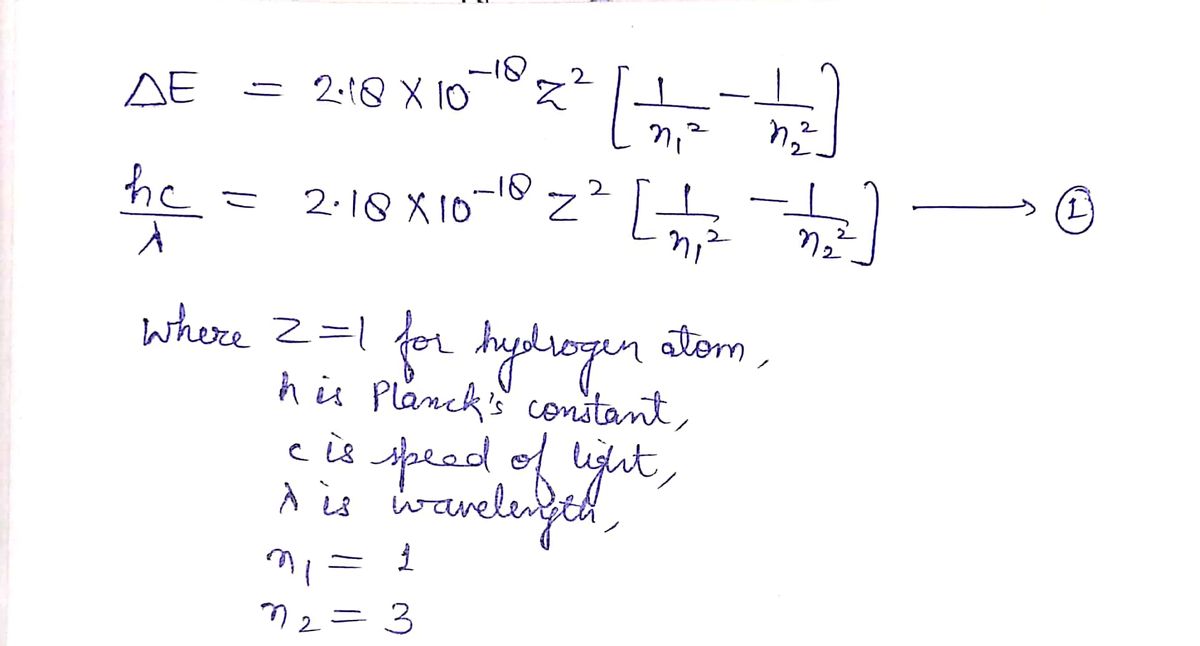 ΔE = 2.18 × 10⁻¹⁸ z² [1/n₁² - 1/n₂²]
hc/λ = 2.18 × 10⁻¹⁸ z² [1/n₁² - 1/n₂²] ⟶ ①
where z = 1 for hydrogen atom,
h is Planck's constant,
c is speed of light,
λ is wavelength,
n₁ = 1
n₂ = 3